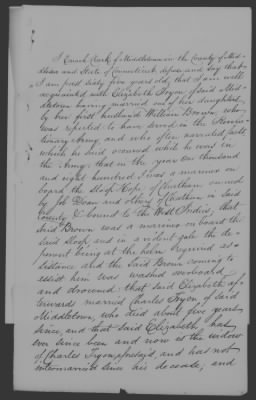 I Enoch Clark of Middletown in the County of Mid-
dlesex and State of Connecticut depose and say that
I am past sixty five years old, that I am well
acquainted with Elizabeth Tryon of said Mid-
dletown having married one of her daughters
by her first husband William Brown, who
was reputed to have served in the Revolu-
tionary Army, and who often narrated facts
which he said occurred while he was in
the Army; that in the year one thousand
and eight hundred I was a mariner on
board the Sloop Hope of Chatham owned
by Job Doan and of Chatham in said
County & bound to the West Indies, that
said Brown was a mariner on board the
said Sloop and in a violent gale the de-
ponent being at the helm required as-
sistance and the said Brown coming to
assist him was washed overboard
and drowned: that said Elizabeth af-
terwards married Charles Tryon of said
Middletown, who died about five years
since, and that said Elizabeth has
ever since been and now is the widow
of Charles Tryon aforesaid, and has not
intermarried since his decease; and